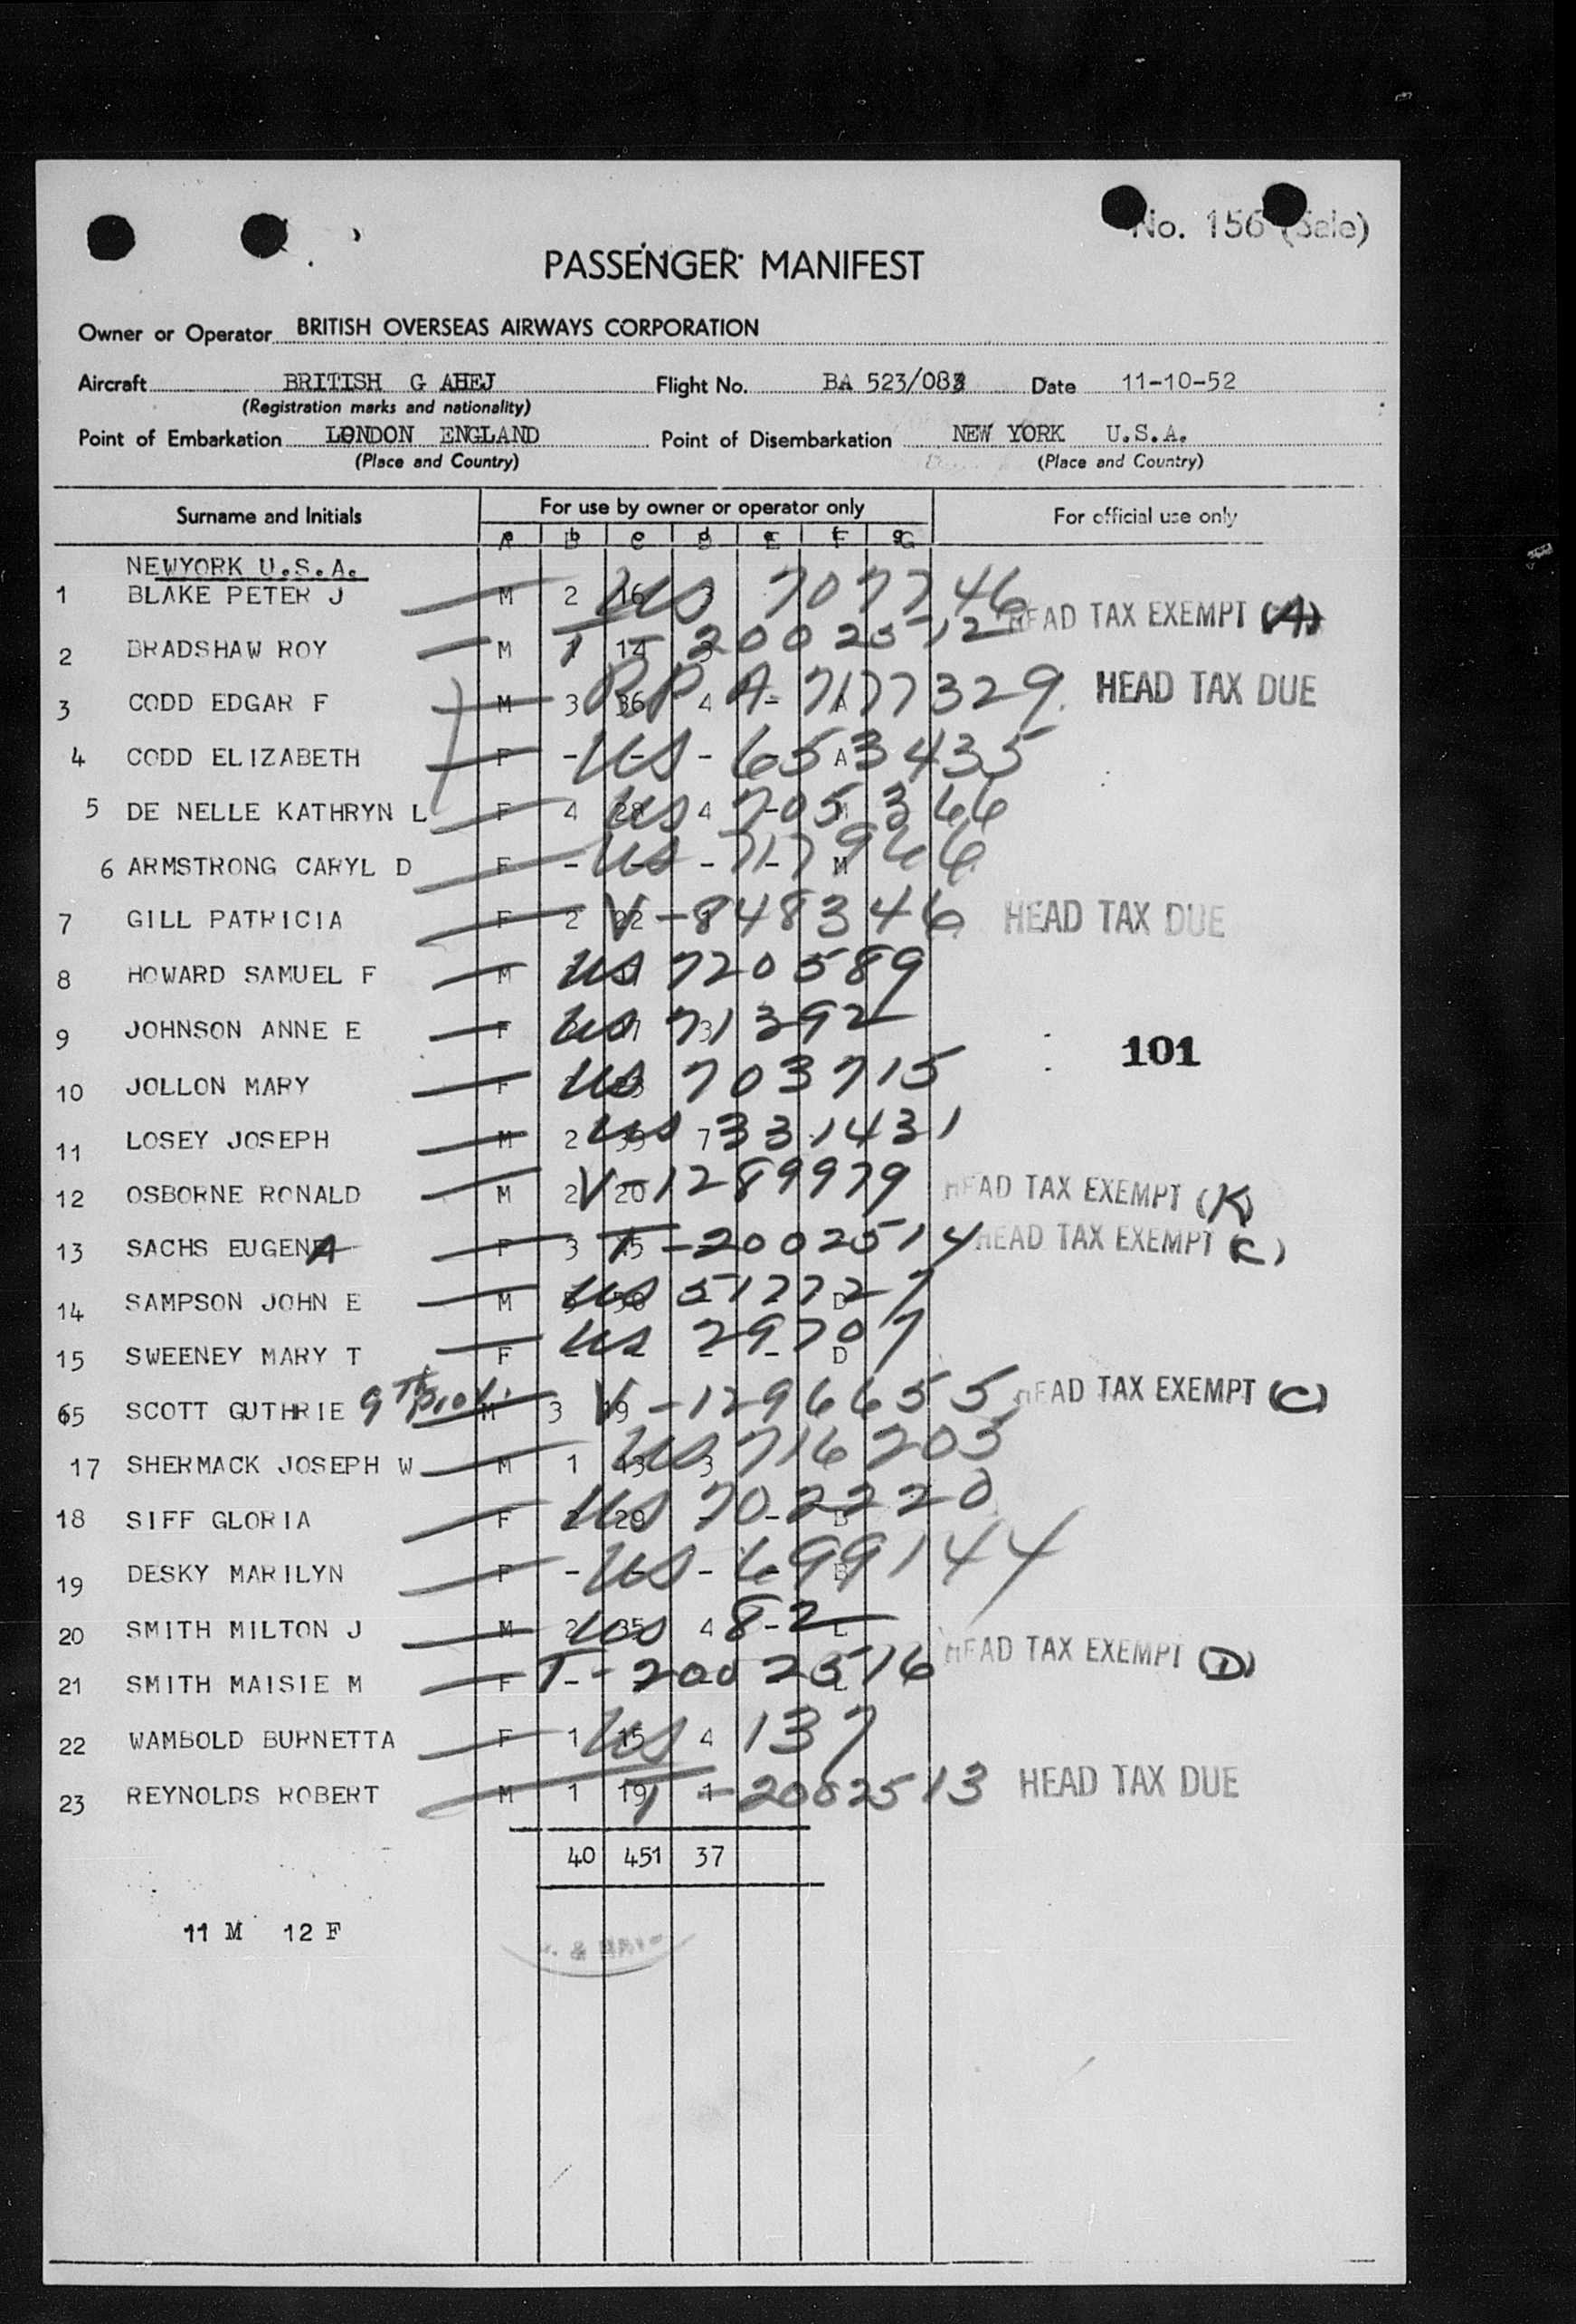 No. 156 (Sale)
PASSENGER MANIFEST
Owner or Operator BRITISH OVERSEAS AIRWAYS CORPORATION
Aircraft BRITISH G AHEJ Flight No. BA 523/083 Date 11-10-52
(Registration marks and nationality)
Point of Embarkation LONDON ENGLAND Point of Disembarkation NEW YORK U.S.A.
(Place and Country) (Place and Country)
Surname and Initials For use by owner or operator only For official use only
NEWYORK U.S.A.
1 BLAKE PETER J M 2 16 US 707746
HEAD TAX EXEMPT (A)
2 BRADSHAW ROY M 1 14 T-20025712
3 CODD EDGAR F M 3 36 4 - A RP A-7177329 HEAD TAX DUE
4 CODD ELIZABETH F - - - A US 653435
5 DE NELLE KATHRYN L F 4 28 4 - M US 705366
6 ARMSTRONG CARYL D F - - - - M US 717966
7 GILL PATRICIA F 2 22 V-848346 HEAD TAX DUE
8 HOWARD SAMUEL F M US 720589
9 JOHNSON ANNE E F US 71392
101
10 JOLLON MARY F US 703715
11 LOSEY JOSEPH M 2 7 US 331431
12 OSBORNE RONALD M 2 20 V-1289979 HEAD TAX EXEMPT (K)
13 SACHS EUGENA F 3 15 T-2002514 HEAD TAX EXEMPT (C)
14 SAMPSON JOHN E M D US 517727
15 SWEENEY MARY T F - - - - D US 29707
65 SCOTT GUTHRIE 9th M 3 19 V-1296655 HEAD TAX EXEMPT (C)
17 SHERMACK JOSEPH W M 1 13 3 US 716205
18 SIFF GLORIA F 2 29 - - B US 702220
19 DESKY MARILYN F - - - - B US 699144
20 SMITH MILTON J M 2 35 4 - L US 82
HEAD TAX EXEMPT (D)
21 SMITH MAISIE M F - L T-2002516
22 WAMBOLD BURNETTA F 1 15 4 US 137
23 REYNOLDS ROBERT M 1 19 1 T-2002513 HEAD TAX DUE
40 451 37
11 M 12 F